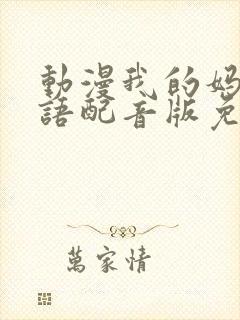 動漫我的媽
語配音版免
萬家情